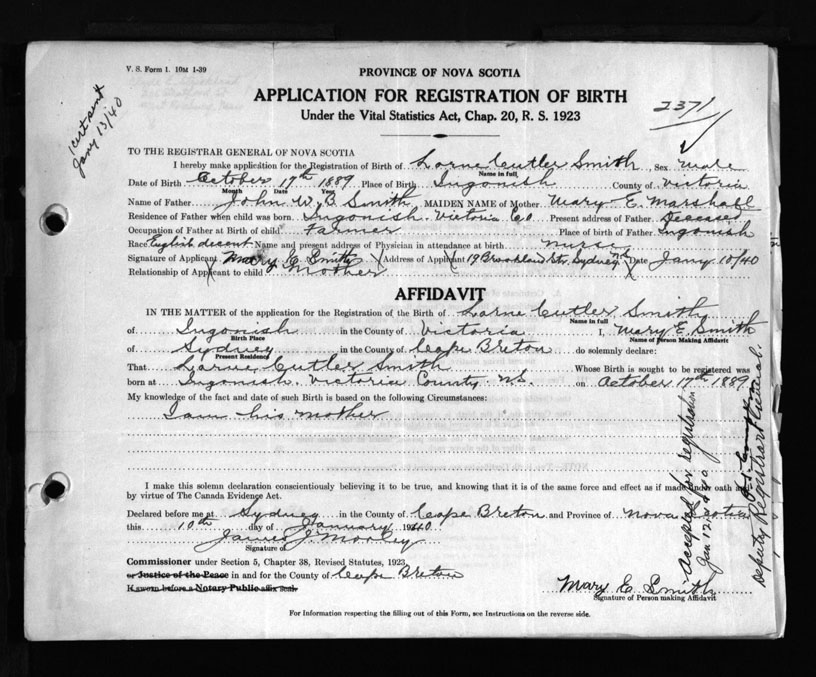 V. S. Form 1. 10M 1-39
PROVINCE OF NOVA SCOTIA
cert sent
Jany 13/40
APPLICATION FOR REGISTRATION OF BIRTH
2371
Under the Vital Statistics Act, Chap. 20, R. S. 1923
TO THE REGISTRAR GENERAL OF NOVA SCOTIA
I hereby make application for the Registration of Birth of Lorne Cutler Smith Sex male
Name in full
Date of Birth October 17th 1889 Place of Birth Ingonish County of Victoria
Month Date Year
Name of Father John W. B. Smith MAIDEN NAME of Mother Mary E. Marshall
Residence of Father when child was born Ingonish. Victoria Co Present address of Father Deceased
Occupation of Father at Birth of child Farmer Place of birth of Father Ingonish
Race English descent Name and present address of Physician in attendance at birth nurse
Signature of Applicant Mary E Smith Address of Applicant 19 Brookland St. Sydney NS Date Jany 10/40
Relationship of Applicant to child Mother
AFFIDAVIT
IN THE MATTER of the application for the Registration of the Birth of Lorne Cutler Smith
Name in full
of Ingonish in the County of Victoria I, Mary E. Smith
Birth Place Name of Person Making Affidavit
of Sydney in the County of Cape Breton do solemnly declare:
Present Residence
That Lorne Cutler Smith Whose Birth is sought to be registered was
born at Ingonish. Victoria County. N.S. on October 17th 1889
My knowledge of the fact and date of such Birth is based on the following Circumstances:
I am his mother
I make this solemn declaration conscientiously believing it to be true, and knowing that it is of the same force and effect as if made under oath and
by virtue of The Canada Evidence Act.
Declared before me at Sydney in the County of Cape Breton and Province of Nova Scotia
this 10th day of January 1940
James J. Morley
Signature of
Commissioner under Section 5, Chapter 38, Revised Statutes, 1923
or Justice of the Peace in and for the County of Cape Breton
If sworn before a Notary Public affix Seal.
Mary E Smith
Signature of Person making Affidavit
Accepted for registration
Jan 12, 1940
Deputy Registrar General.
For Information respecting the filling out of this Form, see Instructions on the reverse side.